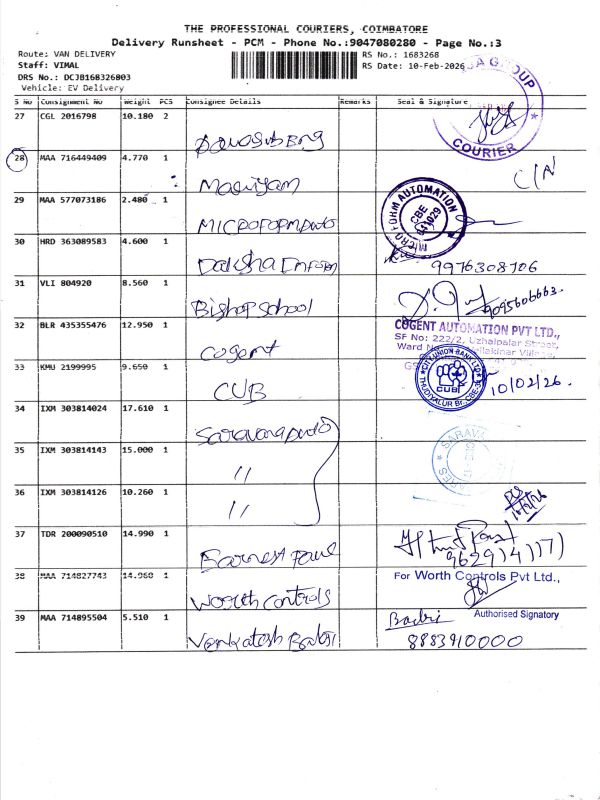 THE PROFESSIONAL COURIERS, COIMBATORE
Delivery Runsheet - PCM - Phone No.:9047080280 - Page No.:3
Route: VAN DELIVERY
RS No.: 1683268
Staff: VIMAL
RS Date: 10-Feb-2026
DRS No.: DCJB168326803
Vehicle: EV Delivery
S No Consignment No Weight PCS Consignee Details Remarks Seal & Signature
GROUP
COURIER
27 CGL 2016798 10.180 2
28 MAA 716449409 4.770 1
Mariyam
29 MAA 577073186 2.480 1
MICROFORM AUTOMATION
CBE
641029
30 HRD 363089583 4.600 1
Daksha
9976308706
31 VLI 804920 8.560 1
Bishop School
9095606663.
32 BLR 435355476 12.950 1
Cogent
COGENT AUTOMATION PVT LTD.,
SF No: 222/2, Uzhalpalar Street,
33 KMU 2199995 9.650 1
CUB
CITY UNION BANK LTD
CUB
THUDIYALUR
10/02/26.
34 IXM 303814024 17.610 1
35 IXM 303814143 15.000 1
"
36 IXM 303814126 10.260 1
"
37 TDR 200090510 14.990 1
38 MAA 714827743 14.960 1
Worth Controls
For Worth Controls Pvt Ltd.,
Authorised Signatory
39 MAA 714895504 5.510 1
Venkatesh
8883910000